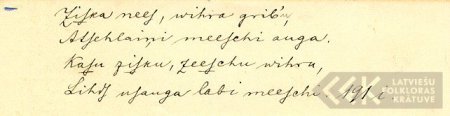 Ziska nees, wihra grib'u,
Atschlaiņi meeschi auga.
Kasu zisku, zeeschu wihru,
Lihds usauga labi meeschi. 191
LATVIEŠU
FOLKLORAS
KRĀTUVE